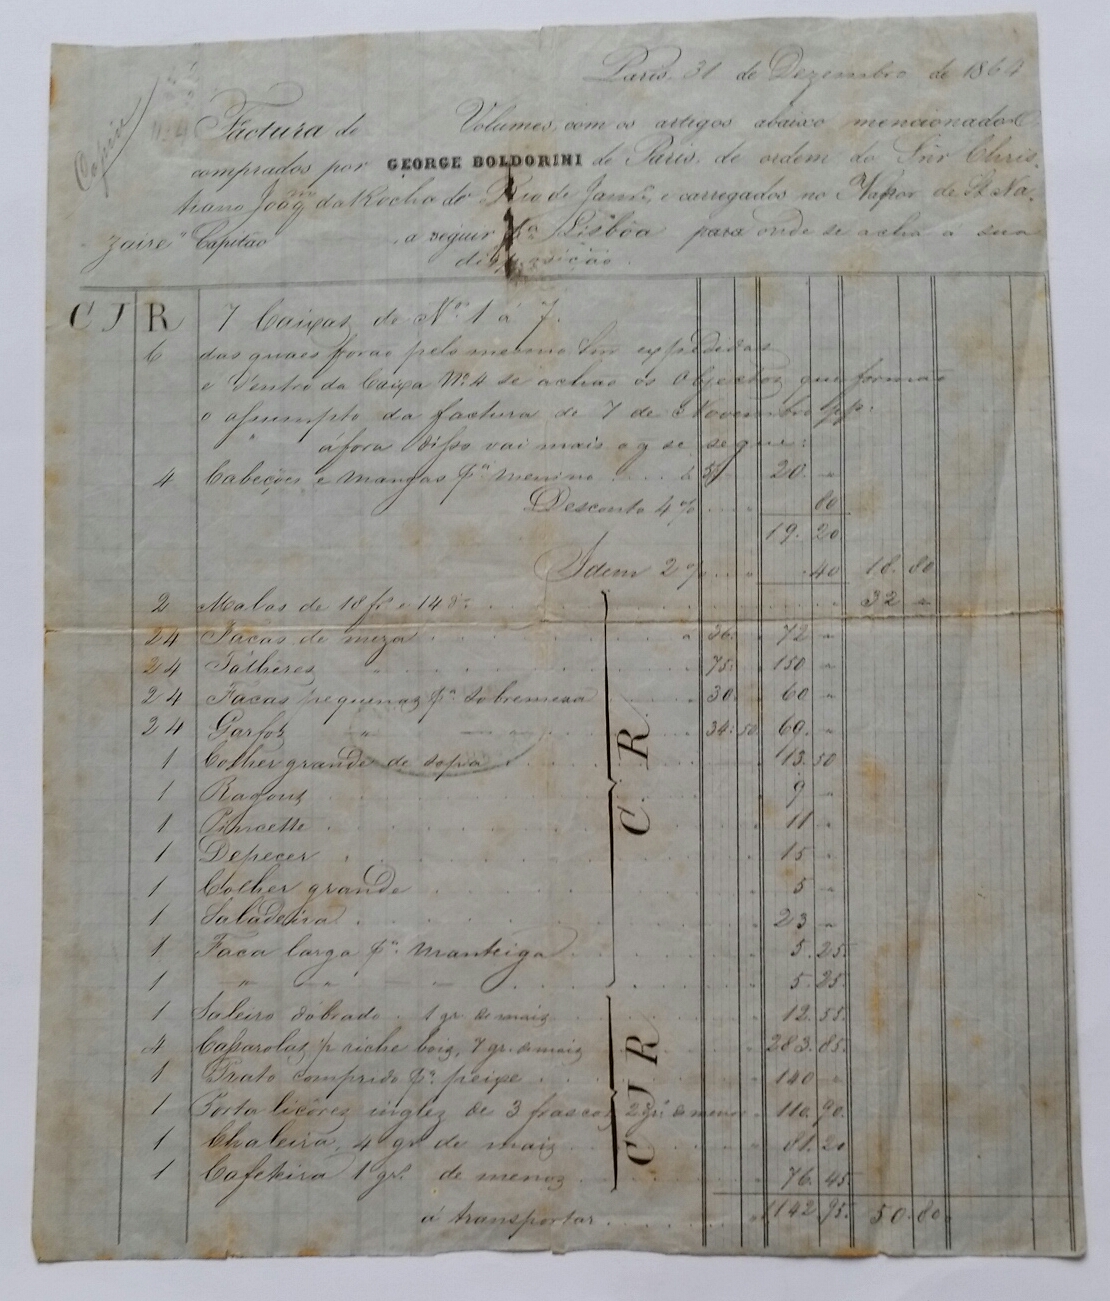 Paris, 31 de Dezembro de 1864
Copia
Factura de Volumes, com os artigos abaixo mencionados
comprados por GEORGE BOLDORINI de Paris, de ordem do Snr Chris-
tiano Joaqm da Rocha do Rio de Janro, e carregados no Vapor de St Na-
zaire" Capitão , a seguir pa Lisbôa para onde se acha a sua
disposição.
C J R 7 Caixas de Nos 1 á 7.
6 das quaes forão pelo mesmo Snr expedidas
e Dentro da Caixa No 4 se achão os Objectos que formão
o assumpto da factura de 7 de Novembro pp:
afora disso vai mais o q se segue:
4 Cabeções e mangas pa menino á 5/ 20. "
Desconto 4% 80
19. 20
Idem 2% .40 18. 80
2 Malas de 18 fr e 14 32 "
24 Facas de meza " 36. 72 "
24 Talheres " 75. 150 "
24 Facas pequenas pa sobremesa 30. 60 "
24 Garfos " 34. 50 69. "
1 Colher grande de sopa 13. 50
1 Ragout 9 "
1 11 "
1 Depecer 15 "
1 Colher grande 5 "
1 Saladeira 23 "
1 Faca larga pa manteiga 5. 25.
1 " " " 5. 25.
C R
1 Saleiro dobrado. 1 gr. de mais 12. 55.
4 Casarolas p riche bois, 7 gr. de mais 283. 85.
1 Prato comprido pa peixe 140 "
1 Porta licôres inglez de 3 frascos 2 grs de menos 110. 90.
1 Chaleira, 4 gr. de mais 81. 20
1 Cafeteira 1 gr. de menos 76. 45
C J R
á transportar 1142. 95. 50. 80.